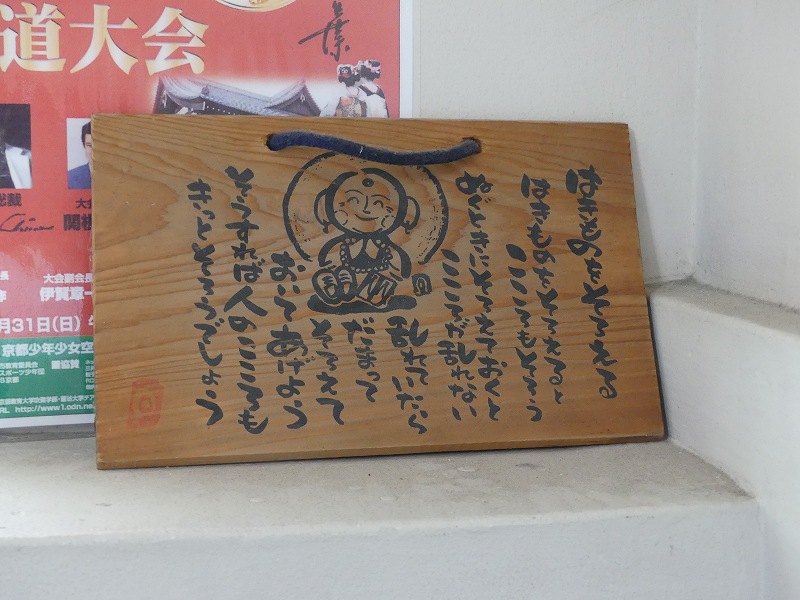 はきものをそろえる
はきものをそろえると
こころもそろう
ぬぐときにそろえておくと
こころが乱れない
乱れていたら
だまって
そろえて
おいてあげよう
そうすれば人のこころも
きっとそろうでしょう
道大会
総裁
関根
大会副会長
伊賀章一
月31日(日)
京都少年少女空
URL http://www1.odn.ne